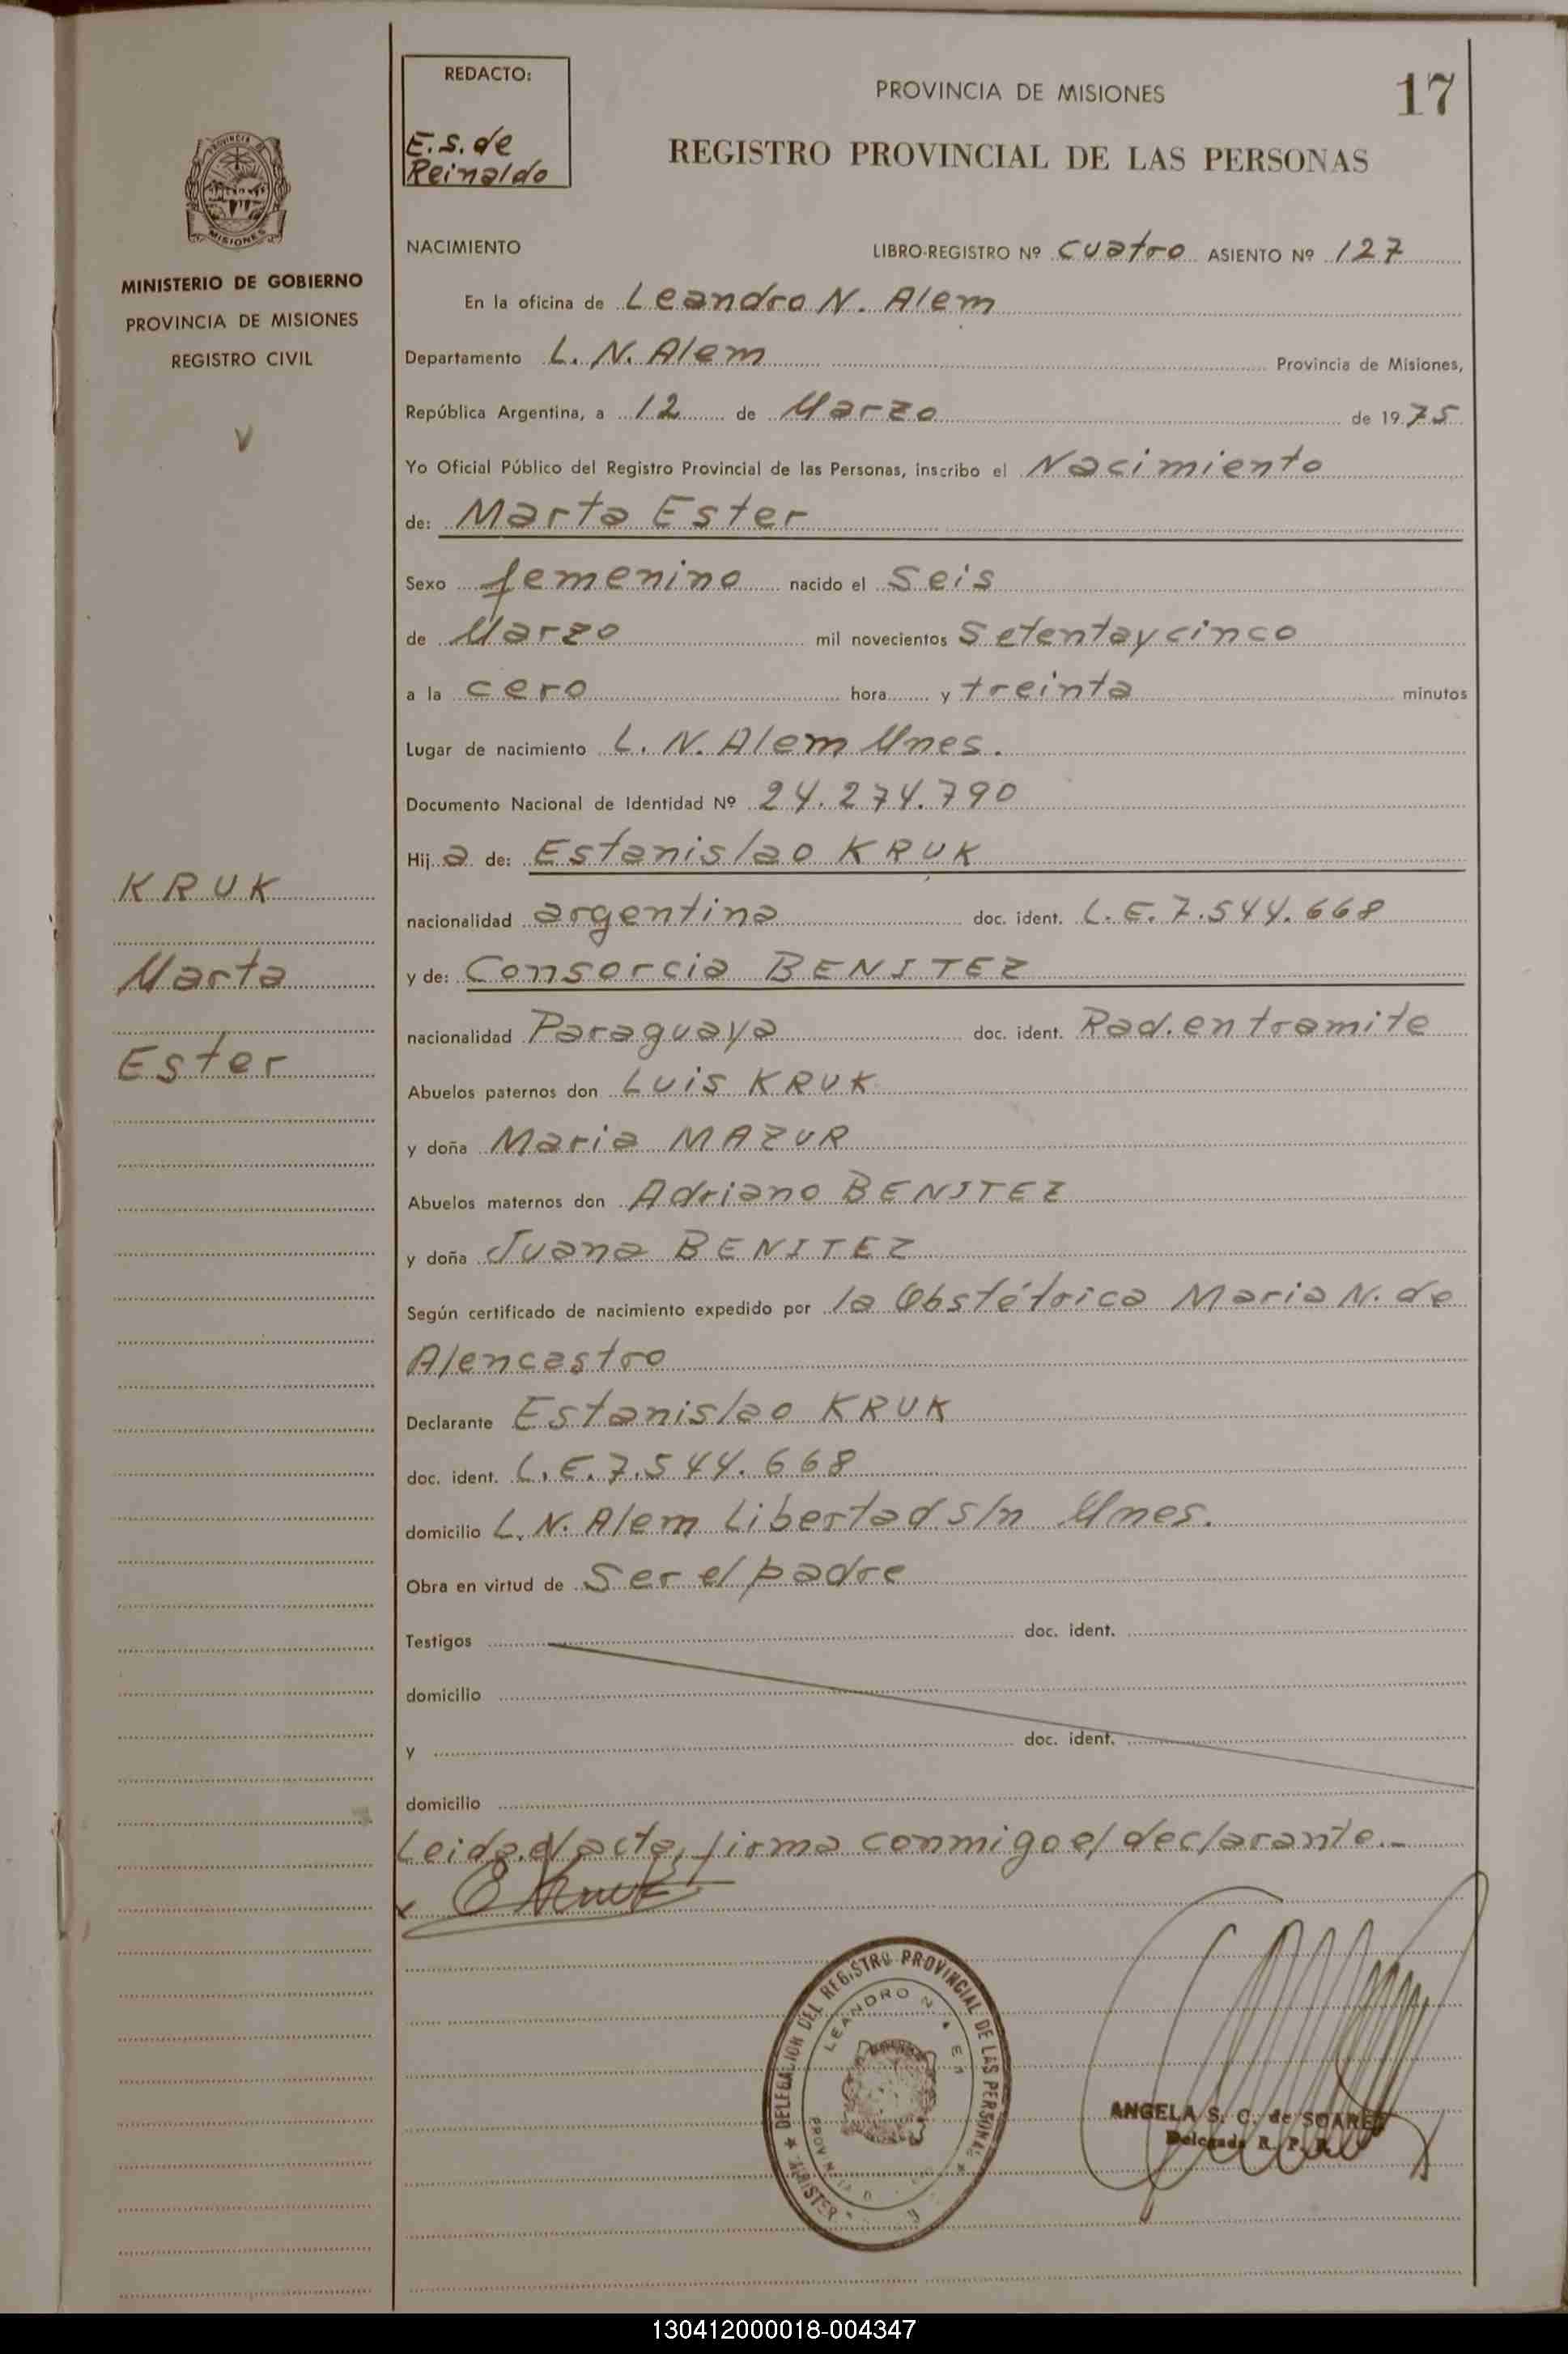 REDACTO:
E.S. de
Reinaldo
PROVINCIA DE MISIONES
17
REGISTRO PROVINCIAL DE LAS PERSONAS
MISIONES
MINISTERIO DE GOBIERNO
PROVINCIA DE MISIONES
REGISTRO CIVIL
V
KRUK
Marta
Ester
NACIMIENTO LIBRO-REGISTRO Nº cuatro ASIENTO Nº 127
En la oficina de Leandro N. Alem
Departamento L. N. Alem Provincia de Misiones,
República Argentina, a 12 de Marzo de 1975
Yo Oficial Público del Registro Provincial de las Personas, inscribo el Nacimiento
de: Marta Ester
Sexo femenino nacido el Seis
de Marzo mil novecientos Setentaycinco
a la cero hora y treinta minutos
Lugar de nacimiento L. N. Alem Mnes.
Documento Nacional de Identidad Nº 24.274.790
Hija de: Estanislao KRUK
nacionalidad argentina doc. ident. L.E. 7.544.668
y de: Consorcia BENITEZ
nacionalidad Paraguaya doc. ident. Rad. en tramite
Abuelos paternos don Luis KRUK
y doña Maria MAZUR
Abuelos maternos don Adriano BENITEZ
y doña Juana BENITEZ
Según certificado de nacimiento expedido por la Obstétrica Maria N. de
Alencastro
Declarante Estanislao KRUK
doc. ident. L.E. 7.544.668
domicilio L. N. Alem Libertad s/n Mnes.
Obra en virtud de Ser el padre
Testigos doc. ident.
domicilio
y doc. ident.
domicilio
Leida el acta, firma conmigo el declarante.-
x EKruk
DELEGACION DEL REGISTRO PROVINCIAL DE LAS PERSONAS
LEANDRO N
ANGELA S. C. de SOAREZ
Delegada R. P. P.
130412000018-004347